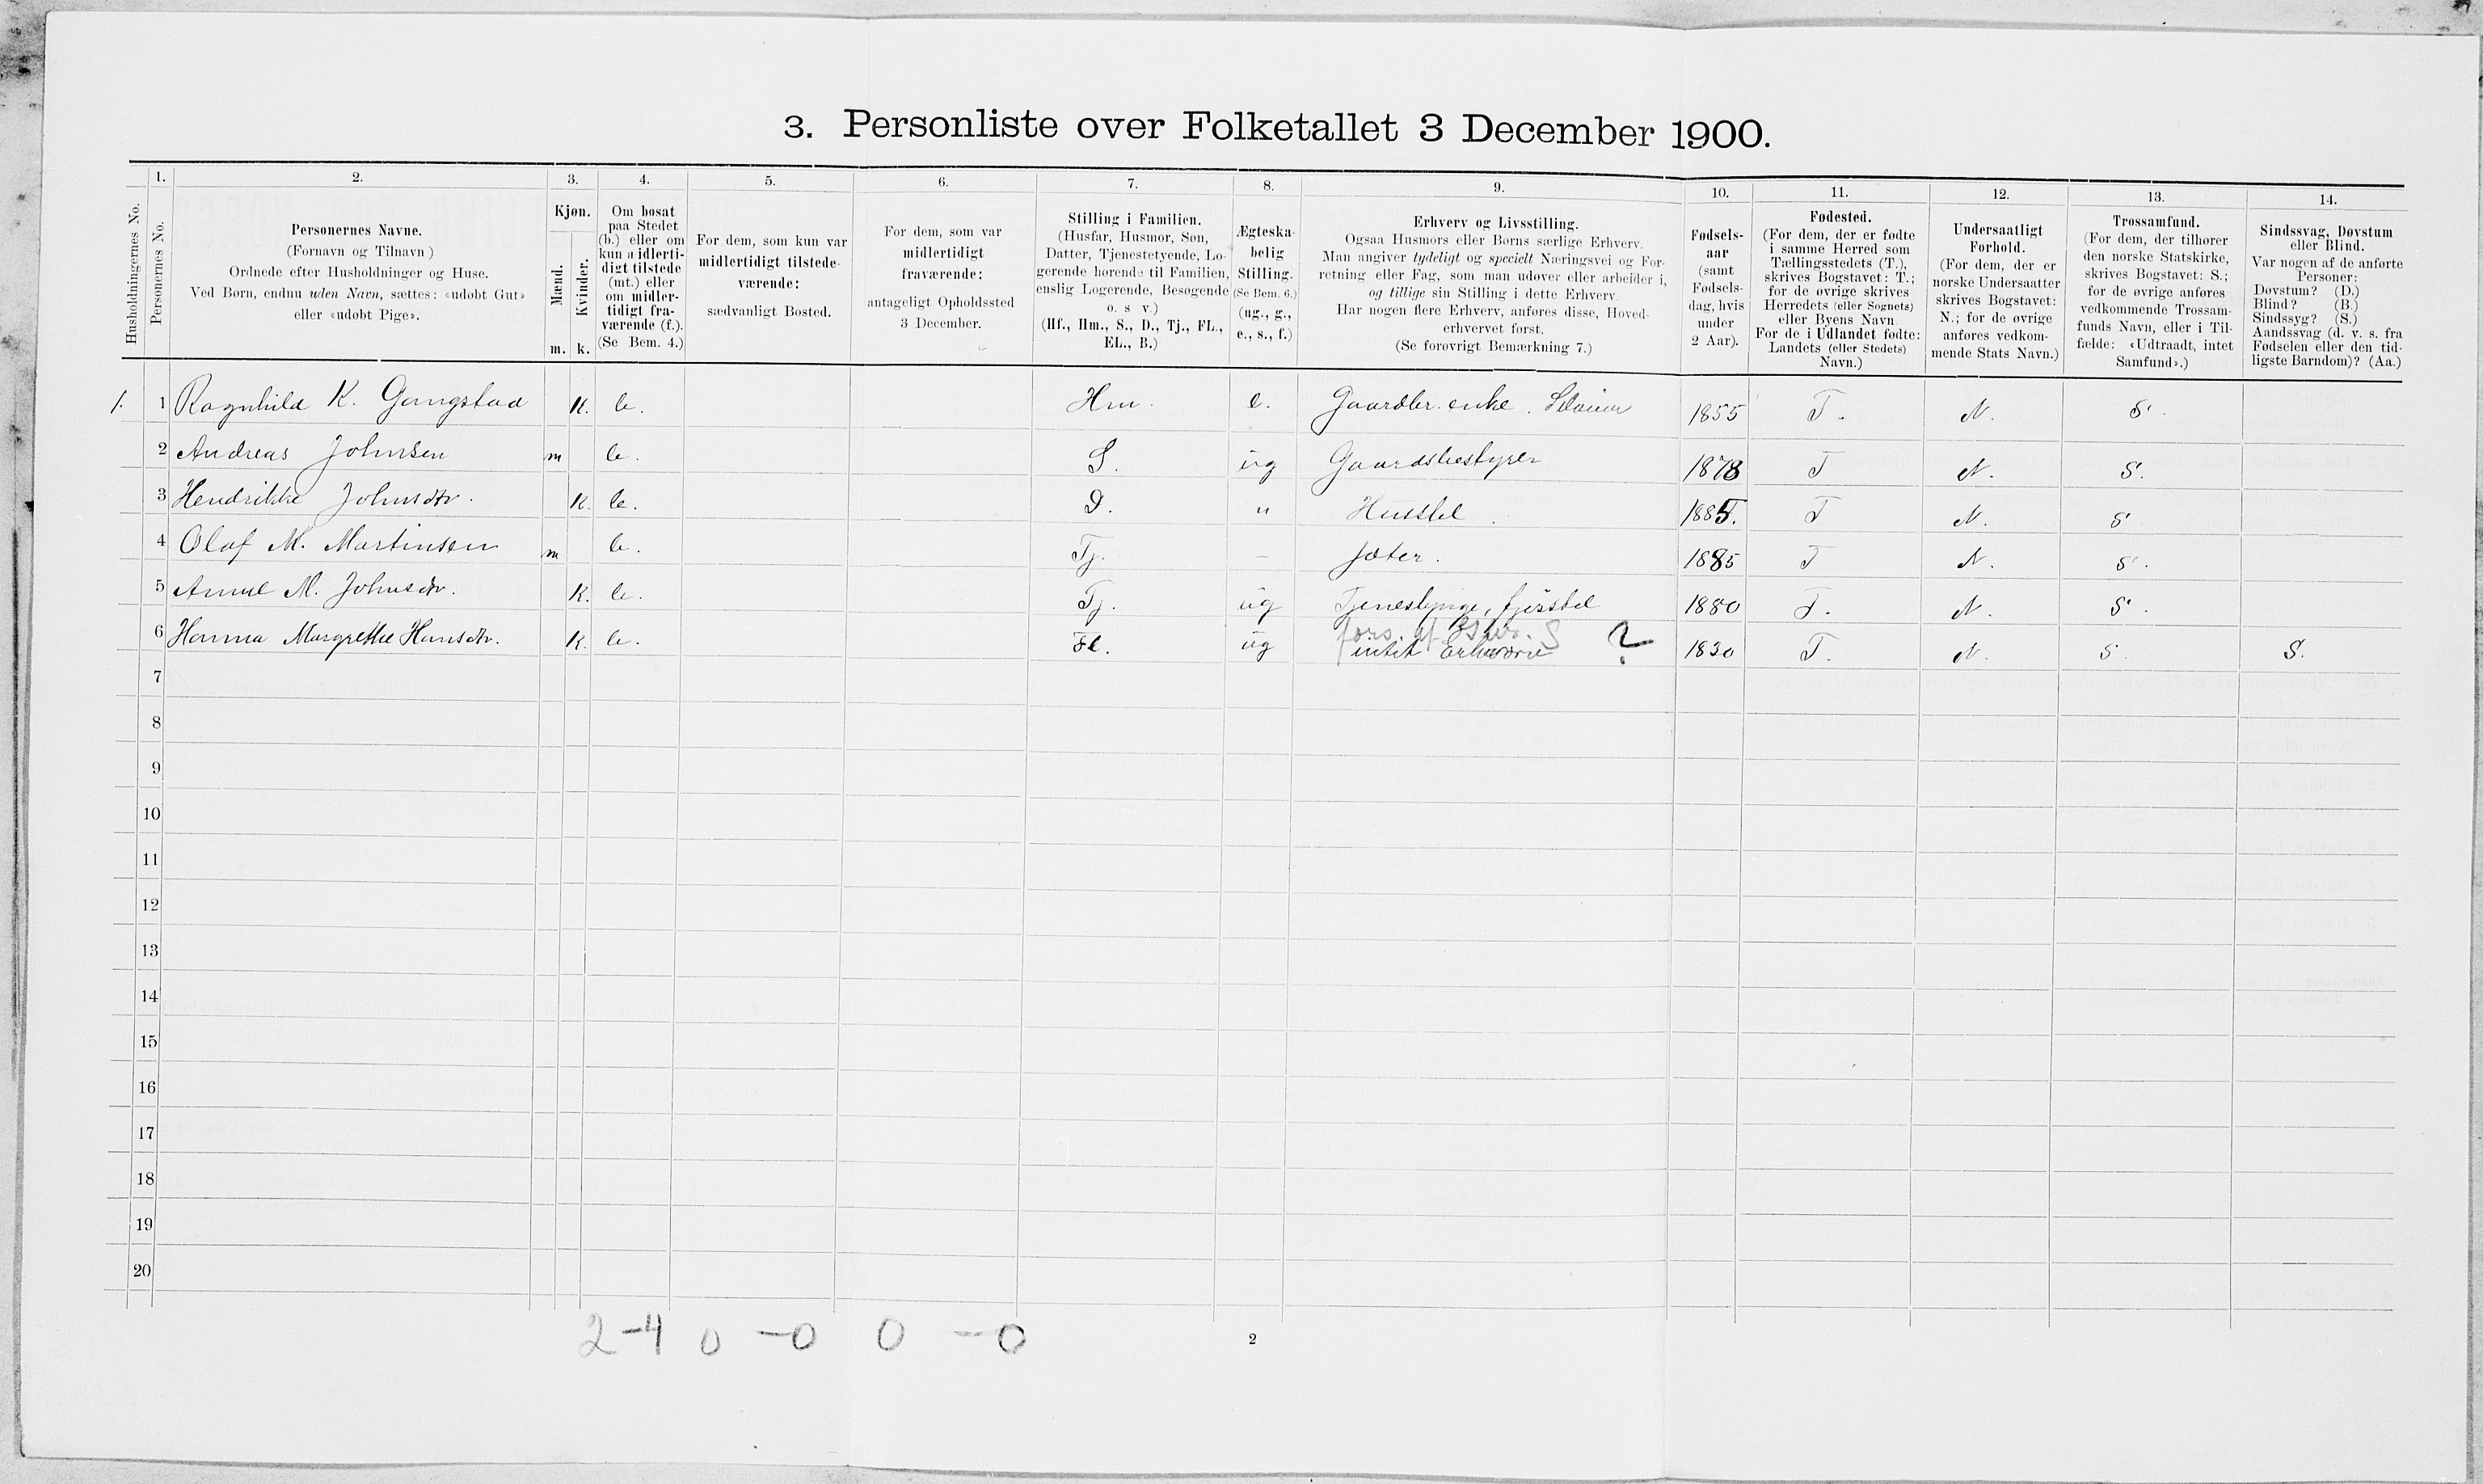 3. Personliste over Folketallet 3 December 1900.
Husholdningernes No.
1.
Personernes No.
2.
Personernes Navne.
(Fornavn og Tilnavn)
Ordnede efter Husholdninger og Huse.
Ved Børn, endnu uden Navn, sættes: «udøbt Gut»
eller «udøbt Pige».
3.
Kjøn.
Mænd.
Kvinder.
m. k.
4.
Om bosat
paa Stedet
(b.) eller om
kun midlerti-
digt tilstede
(mt.) eller
om midler-
tidigt fra-
værende (f.).
(Se Bem. 4.)
5.
For dem, som kun var
midlertidigt tilstede-
værende:
sædvanligt Bosted.
6.
For dem, som var
midlertidigt
fraværende:
antageligt Opholdssted
3 December.
7.
Stilling i Familien.
(Husfar, Husmor, Søn,
Datter, Tjenestetyende, Lo-
gerende hørende til Familien,
enslig Logerende, Besøgende
o. s v.)
(Hf., Hm., S., D., Tj., FL.,
EL., B.)
8.
Ægteska-
belig
Stilling.
(Se Bem. 6.)
(ug., g.,
e., s., f.)
9.
Erhverv og Livsstilling.
Ogsaa Husmors eller Børns særlige Erhverv.
Man angiver tydeligt og specielt Næringsvei og For-
retning eller Fag, som man udøver eller arbeider i,
og tillige sin Stilling i dette Erhverv.
Har nogen flere Erhverv, anføres disse, Hoved-
erhvervet først.
(Se forøvrigt Bemærkning 7.)
10.
Fødsels-
aar
(samt
Fødsels-
dag, hvis
under
2 Aar).
11.
Fødested.
(For dem, der er fødte
i samme Herred som
Tællingsstedets (T.),
skrives Bogstavet: T.;
for de øvrige skrives
Herredets (eller Sognets)
eller Byens Navn
For de i Udlandet fødte:
Landets (eller Stedets)
Navn.)
12.
Undersaatligt
Forhold.
(For dem, der er
norske Undersaatter
skrives Bogstavet:
N.; for de øvrige
anføres vedkom-
mende Stats Navn.)
13.
Trossamfund.
(For dem, der tilhører
den norske Statskirke,
skrives Bogstavet: S.;
for de øvrige anføres
vedkommende Trossam-
funds Navn, eller i Til-
fælde: «Udtraadt, intet
Samfund».)
14.
Sindssvag, Døvstum
eller Blind.
Var nogen af de anførte
Personer:
Døvstum? (D.)
Blind? (B.)
Sindssyg? (S.)
Aandssvag (d. v. s. fra
Fødselen eller den tid-
ligste Barndom)? (Aa.)
1. 1 Ragnhild K. Gangstad K. b. Hm. e. Gaardbr. enke. 1855 T. N. S.
2 Andreas Johnsen m b. S. ug Gaardsbestyrer 1878 T N. S.
3 Hendrikke Johnsdtr. K. b. D. " Husstel 1885. T N. S
4 Olaf M. Martinsen m b. Tj. - Jæter. 1885 T N. S.
5 Anne M. Johnsdtr. K. b. Tj. ug Tjenestpige, fjøsstel 1880 T. N. S.
6 Hanna Margrethe Hansdtr. K. b. Fl. ug fors. af S ? intet Erhverv 1830 T. N. S. S.
7
8
9
10
11
12
13
14
15
16
17
18
19
20
2-4 0-0 0-0
2